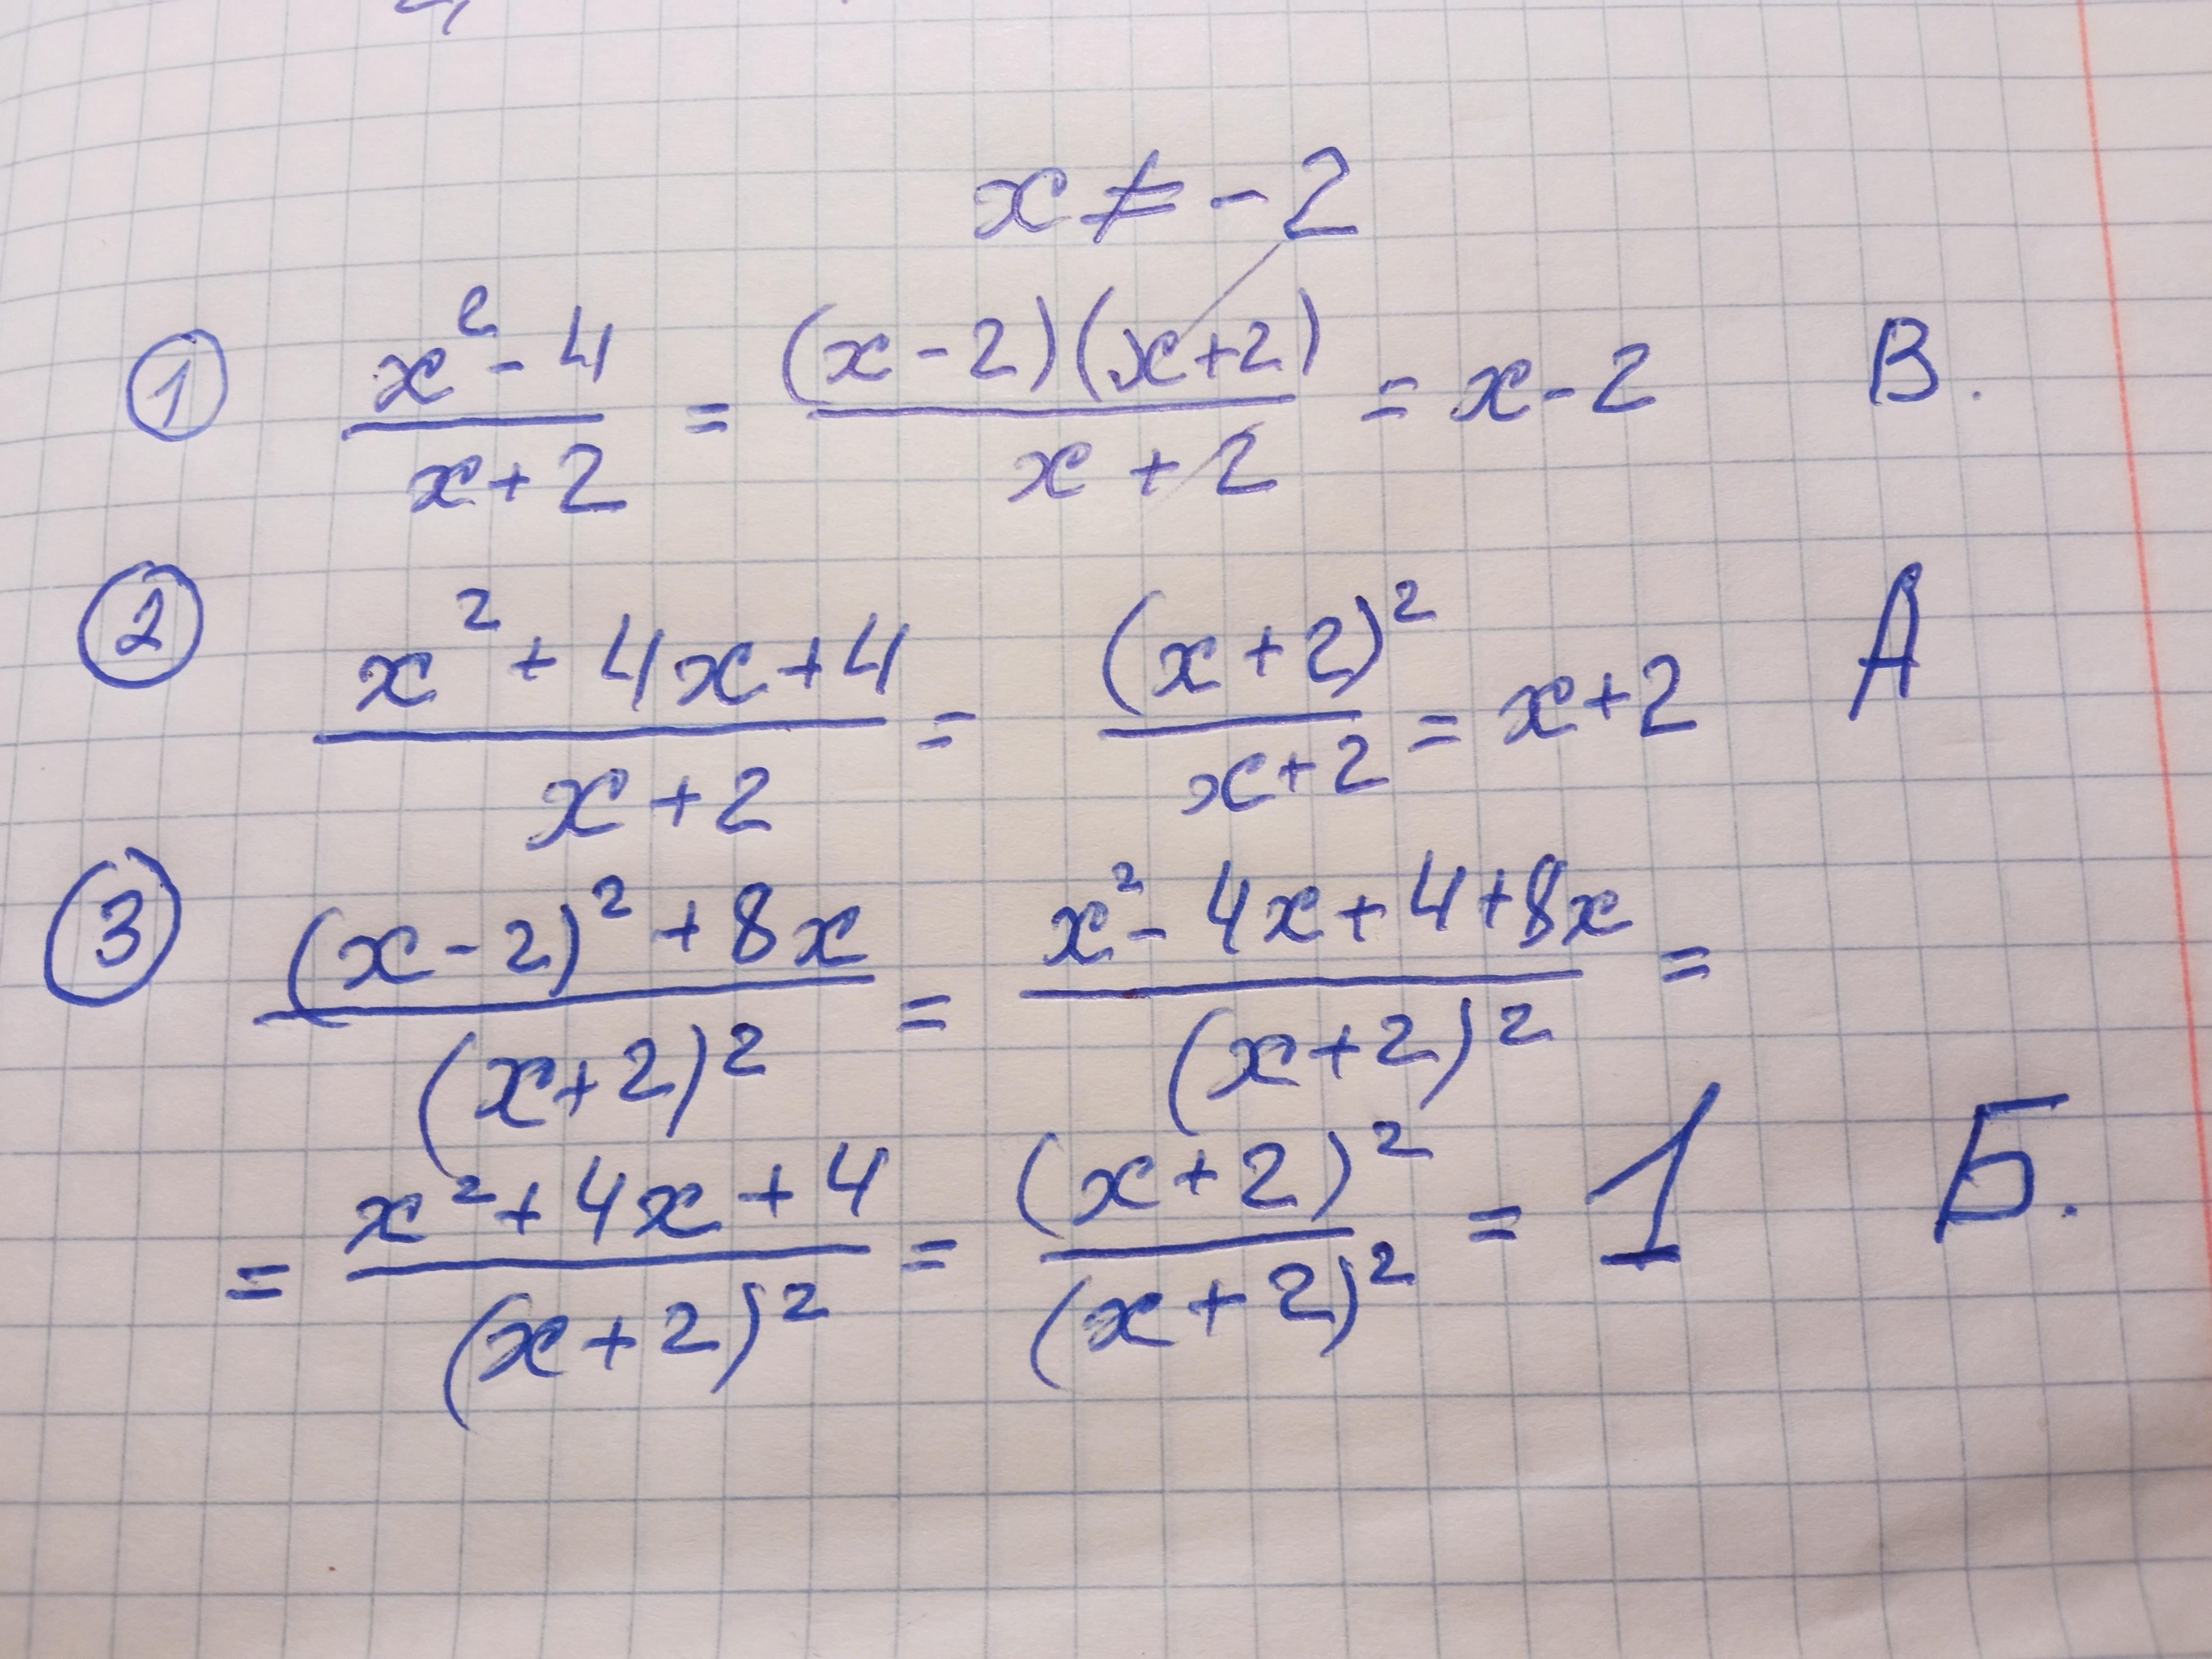 x ≠ -2
① (x² - 4)/(x + 2) = ((x - 2)(x + 2))/(x + 2) = x - 2 В.
② (x² + 4x + 4)/(x + 2) = (x + 2)²/(x + 2) = x + 2 А
③ ((x - 2)² + 8x)/(x + 2)² = (x² - 4x + 4 + 8x)/(x + 2)² =
= (x² + 4x + 4)/(x + 2)² = (x + 2)²/(x + 2)² = 1 Б.